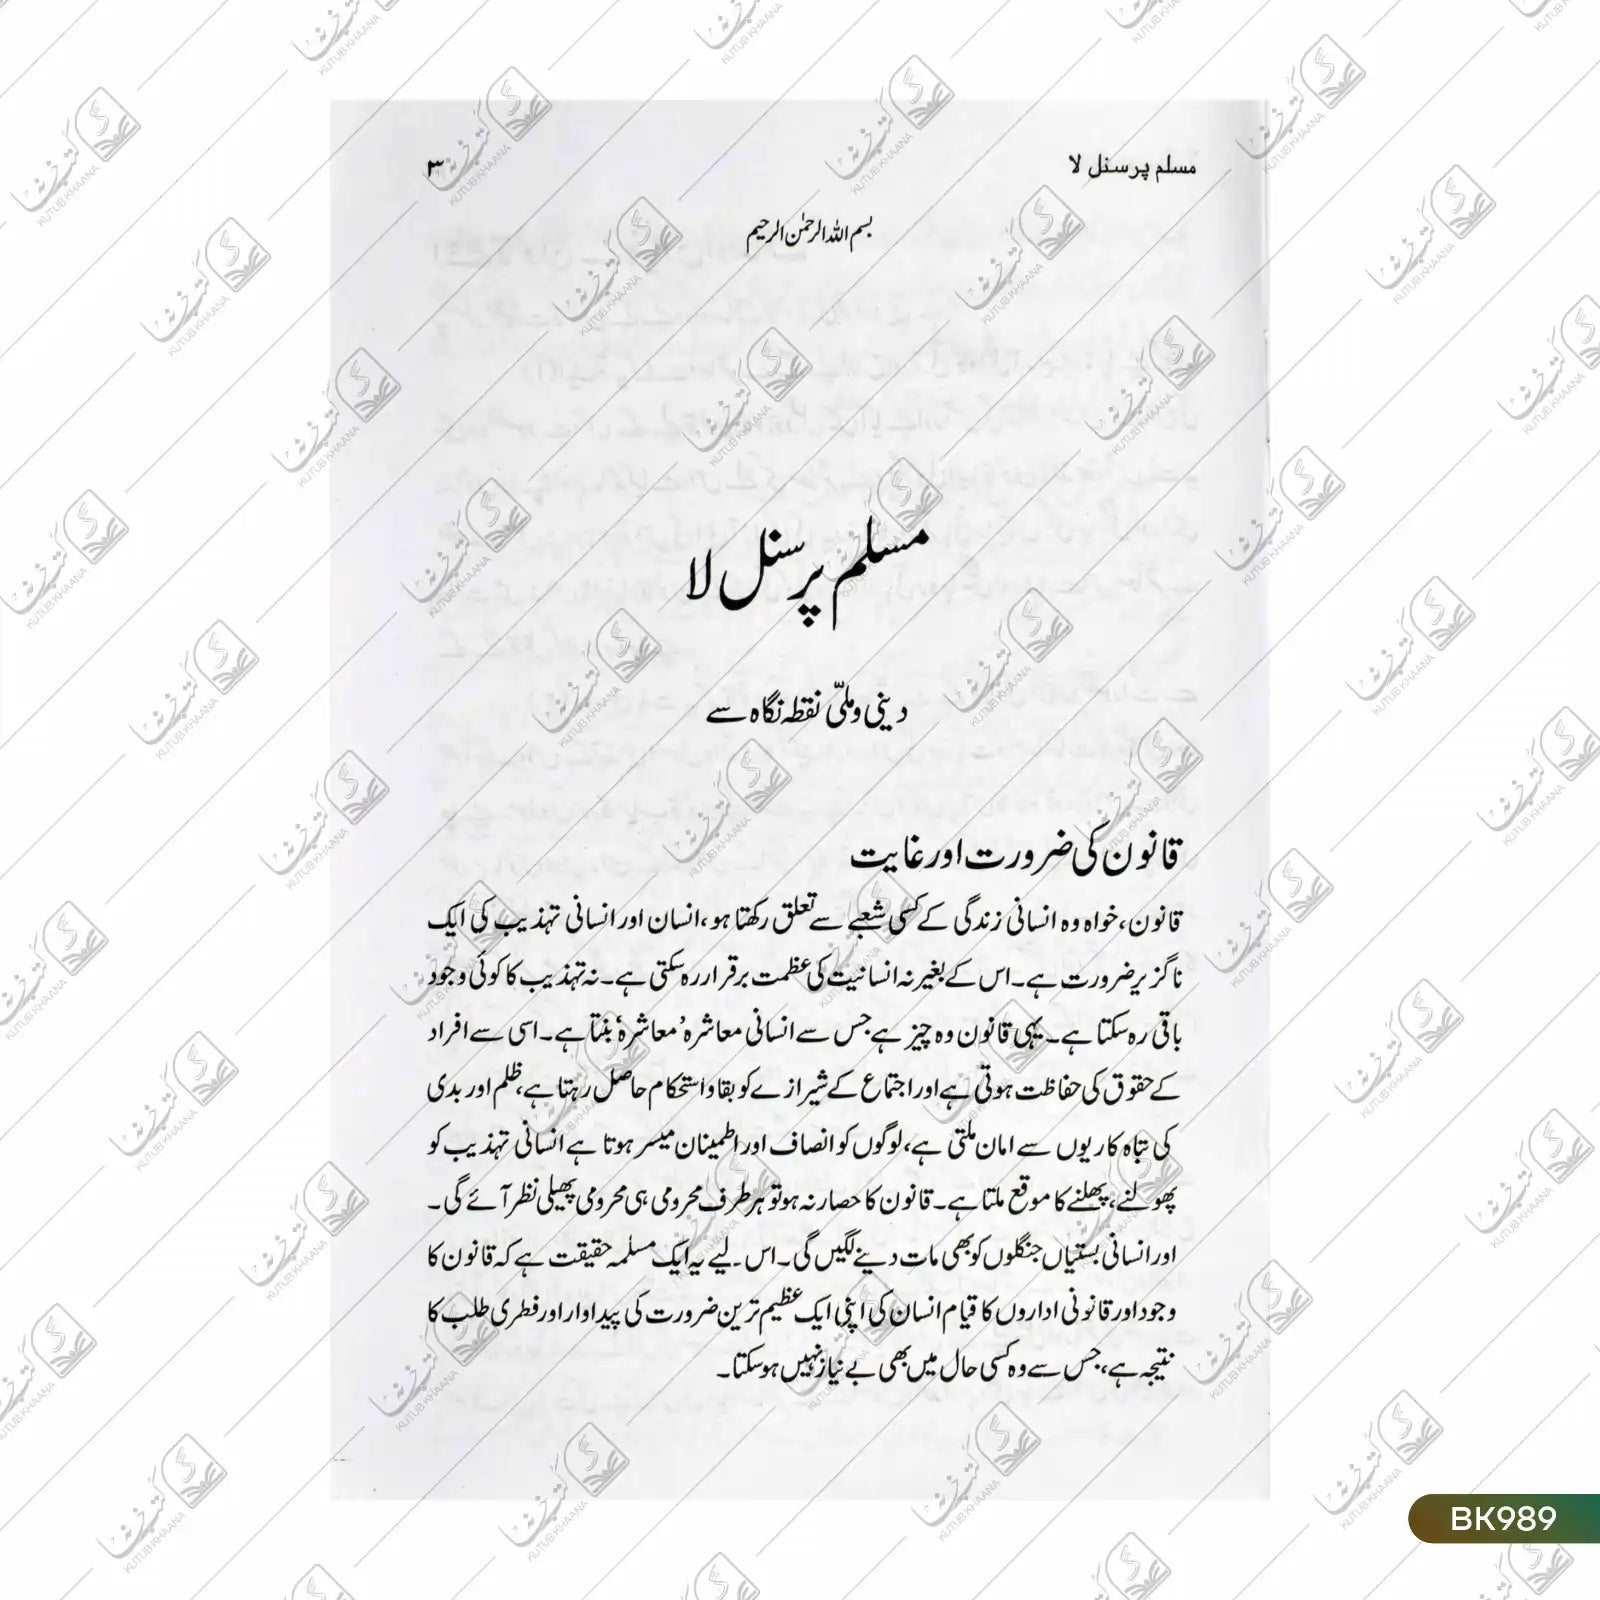 مسلم پرسنل لا
۳
بسم اللہ الرحمٰن الرحیم
مسلم پرسنل لا
دینی و ملّی نقطہ نگاہ سے
قانون کی ضرورت اور غایت
قانون، خواہ وہ انسانی زندگی کے کسی شعبے سے تعلق رکھتا ہو، انسان اور انسانی تہذیب کی ایک
ناگزیر ضرورت ہے۔ اس کے بغیر نہ انسانیت کی عظمت برقرار رہ سکتی ہے۔ نہ تہذیب کا کوئی وجود
باقی رہ سکتا ہے۔ یہی قانون وہ چیز ہے جس سے انسانی معاشرہ ’معاشرہ‘ بنتا ہے۔ اسی سے افراد
کے حقوق کی حفاظت ہوتی ہے اور اجتماع کے شیرازے کو بقا و استحکام حاصل رہتا ہے، ظلم اور بدی
کی تباہ کاریوں سے امان ملتی ہے، لوگوں کو انصاف اور اطمینان میسر ہوتا ہے انسانی تہذیب کو
پھولنے، پھلنے کا موقع ملتا ہے۔ قانون کا حصار نہ ہو تو ہر طرف محرومی ہی محرومی پھیلی نظر آئے گی۔
اور انسانی بستیاں جنگلوں کو بھی مات دینے لگیں گی۔ اس لیے یہ ایک مسلمہ حقیقت ہے کہ قانون کا
وجود اور قانونی اداروں کا قیام انسان کی اپنی ایک عظیم ترین ضرورت کی پیداوار اور فطری طلب کا
نتیجہ ہے، جس سے وہ کسی حال میں بھی بے نیاز نہیں ہو سکتا۔
BK989
KUTUB KHAANA